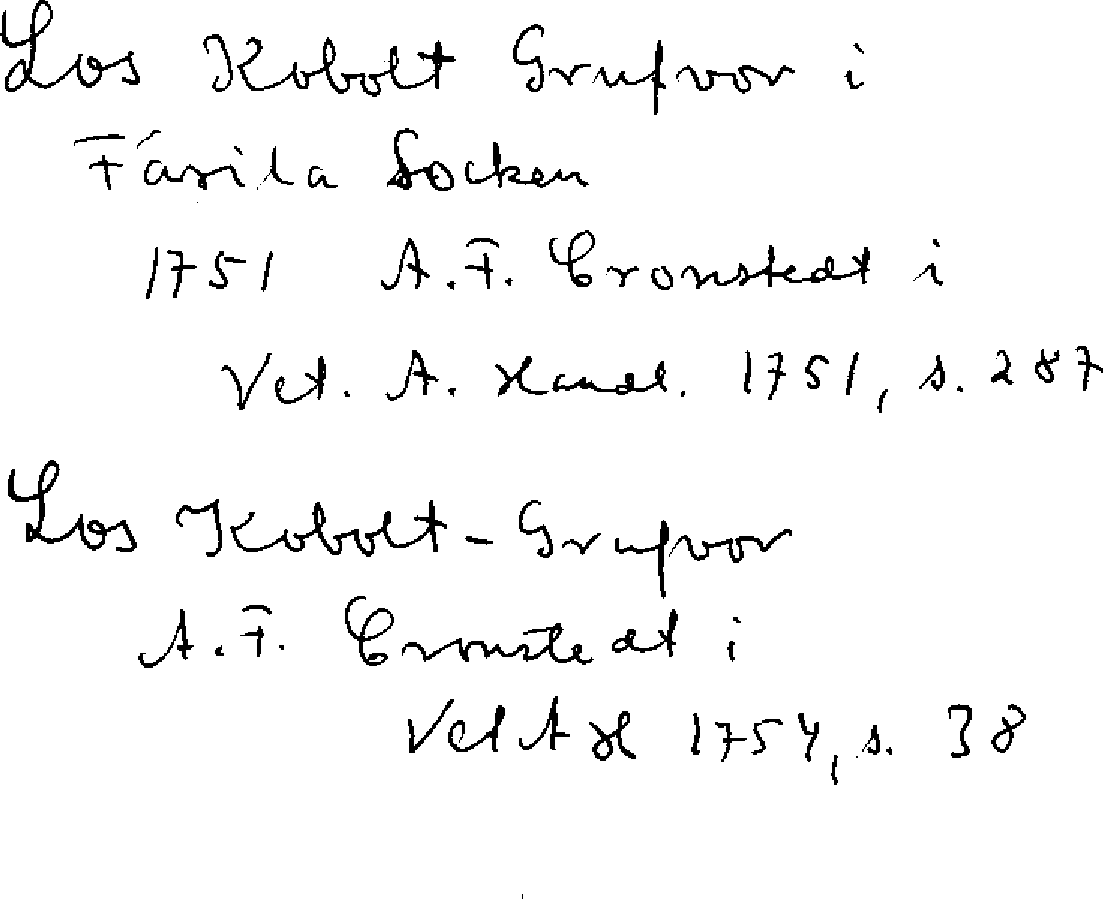 Los Kobolt Grufvor i
Färila Socken
1751 A.F. Cronstedt i
Vet. A. Handl. 1751, s. 287
Los Kobolt-Grufvor
A.F. Cronstedt i
Vet A H 1754, s. 38